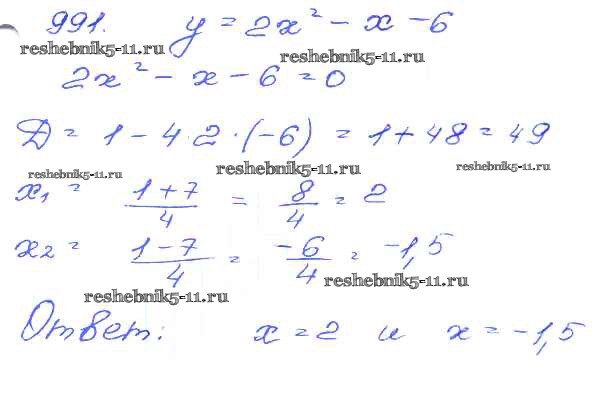 991. y = 2x² - x - 6
reshebnik5-11.ru reshebnik5-11.ru
2x² - x - 6 = 0
D = 1 - 4·2·(-6) = 1 + 48 = 49
reshebnik5-11.ru reshebnik5-11.ru reshebnik5-11.ru
x₁ = 1+7/4 = 8/4 = 2
x₂ = 1-7/4 = -6/4 = -1,5
reshebnik5-11.ru reshebnik5-11.ru
Ответ: x = 2 и x = -1,5